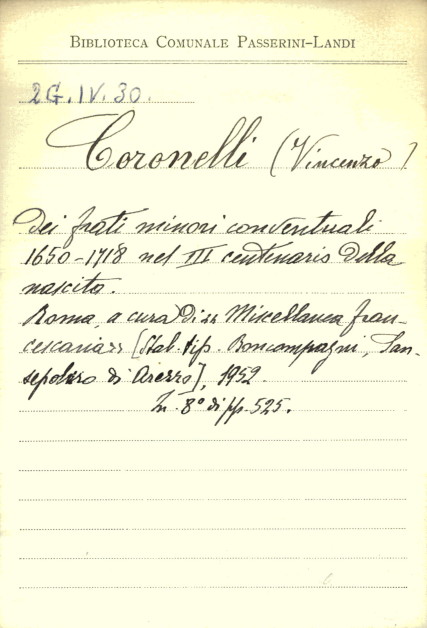 BIBLIOTECA COMUNALE PASSERINI-LANDI
2G.IV.30.
Coronelli (Vincenzo)
Dei frati minori conventuali
1650-1718 nel III centenario della
nascita.
Roma, a cura di "Miscellanea fran-
cescana" [Stab. tip. Boncompagni, San-
sepolcro di Arezzo], 1952.
In 8° di pp. 525.